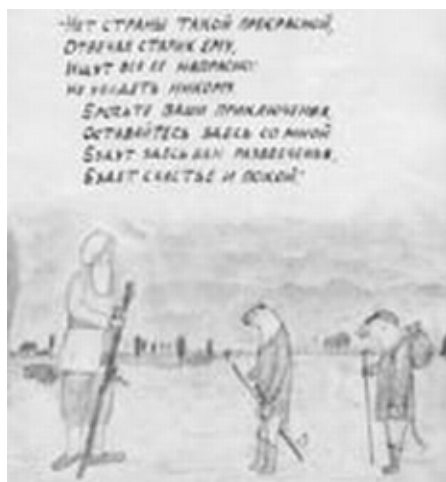 -НЕТ СТРАНЫ ТАКОЙ ПРЕКРАСНОЙ,
ОТВЕЧАЕ СТАРИК ЕМУ,
ИЩУТ ВСЕ ЕЕ НАПРАСНО:
НЕ УВИДЕТЬ НИКОМУ.
БРОСЬТЕ ВАШИ ПРИКЛЮЧЕНИЯ,
ОСТАВАЙТЕСЬ ЗДЕСЬ СО МНОЙ
БУДУТ ЗДЕСЬ ВАМ РАЗВЛЕЧЕНЬЯ,
БУДЕТ СЧАСТЬЕ И ПОКОЙ.